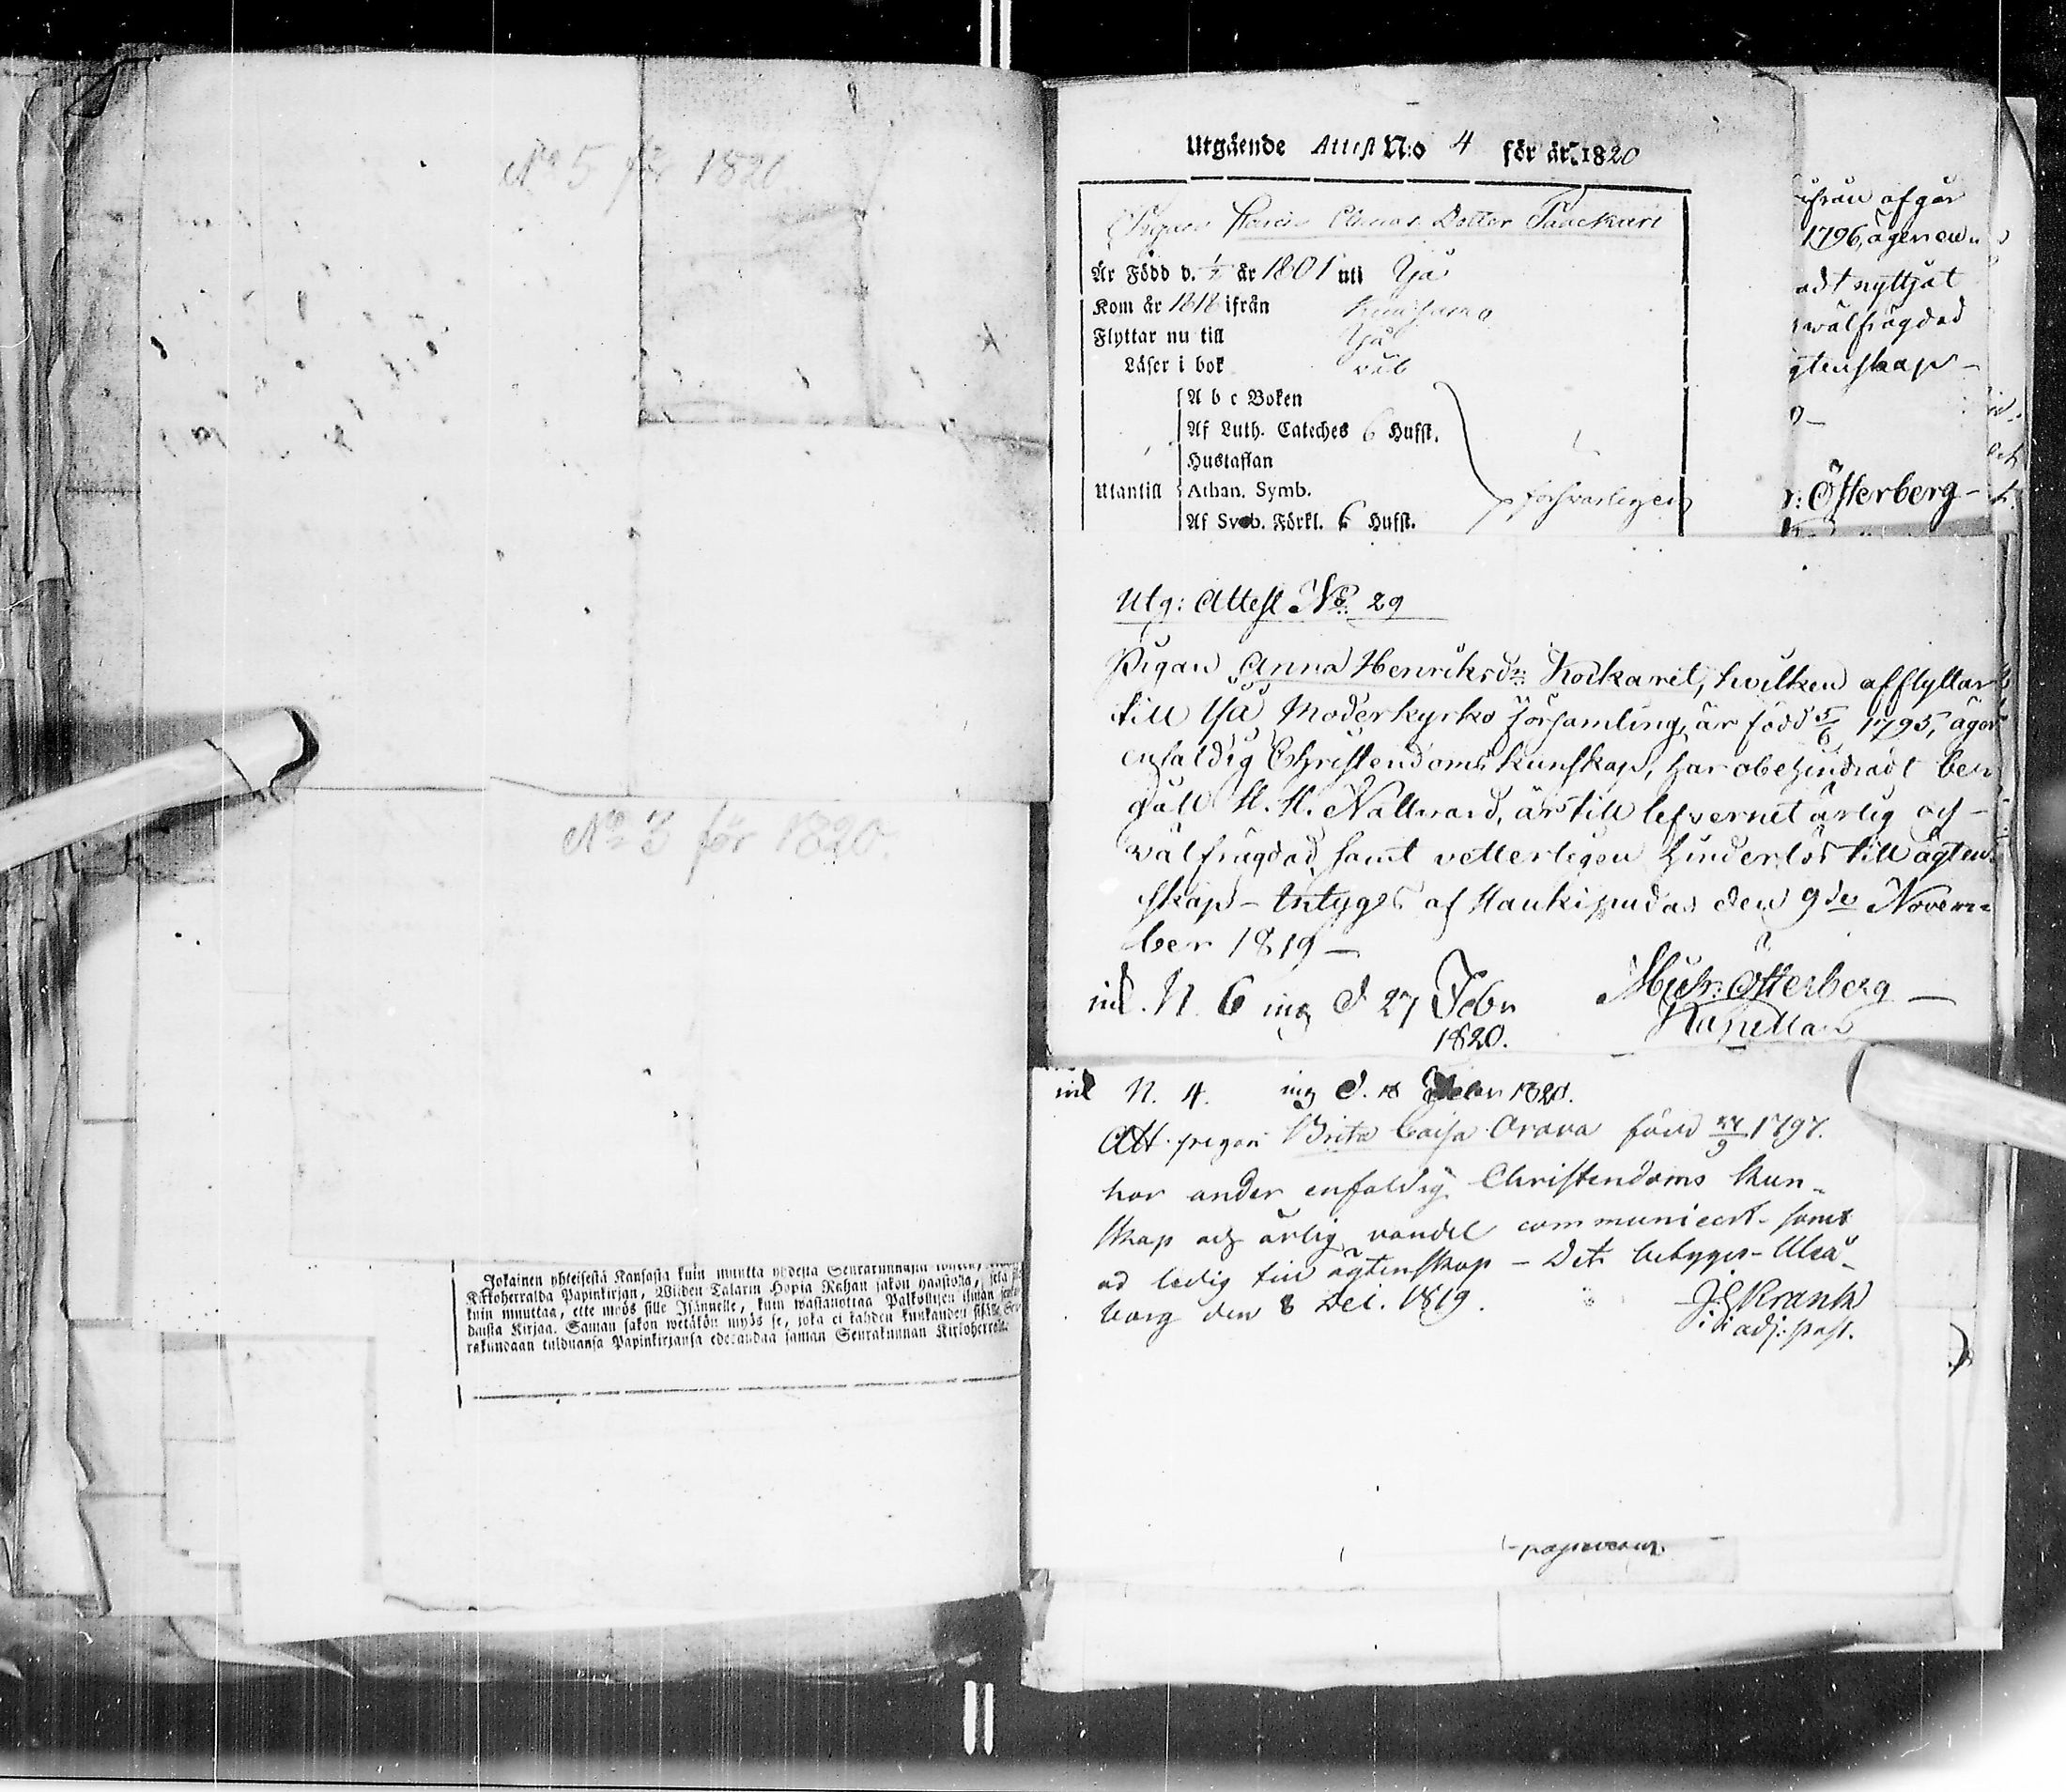 No 5 för 1820
No 3 för 1820.
Jokainen yhteisestä Kansasta kuin muutta yhdestä Seurakunnasta
Kirkoherralda Papinkirjan, Wiiden Talarin Hopia Rahan sakon haastolla, sekä
kuin muuttaa, ette myös sille Isännelle, kuin wastanottaa Palkollisen ilman
daista Kirjaa. Saman sakon wetäkön myös se, joka ei kahden kuukauden sisälle
rakundaan tulduansa Papinkirjansa edesandaa saman Seurakunnan Kirkoherralle
Utgående Attest N:o 4 för år 1820
Pigan Dotter
Är Född d. år 1801 uti Ijå
Kom år 1818 ifrån Kuusamo
Flyttar nu till Ijå
Läser i bok väl
A b c Boken
Af Luth. Cateches 6 Hufst.
Hustaflan
Utantill Athan. Symb. försvarligen
Af Sveb. Förkl. 6 Hufst.
ifrån afgår
1796, äger en
adt nyttjat
wälfrägdad
gtenskap -
r: Österberg -
Utg: Attest No 29
Pigan Anna Henriksdr Kockarit, hvilken afflyttar
till Ijå Moderkyrko församling, är född 5/6 1795, äger
enfaldig Christendoms kunskap, har obehindradt be
gått H. H. Nattvard, är till lefvernet ärlig och
välfrägdad, samt vetterligen hinderlös till ägten
skap - Intygas af Haukipudas den 9de Novem
ber 1819 -
Österberg
Kapellan
inl. N. 6 ing d 27 Febr
1820.
inl N. 4. ing d. 18 Febr 1820.
Att pigan Brita Caisa Orava född 27/9 1797.
har under enfaldig Christendoms kun-
skap och ärlig vandel communicert - samt
är ledig till ägtenskap - Det betygas - Uleå-
borg den 8 Dec. 1819.
J. G Krank
adj: past.